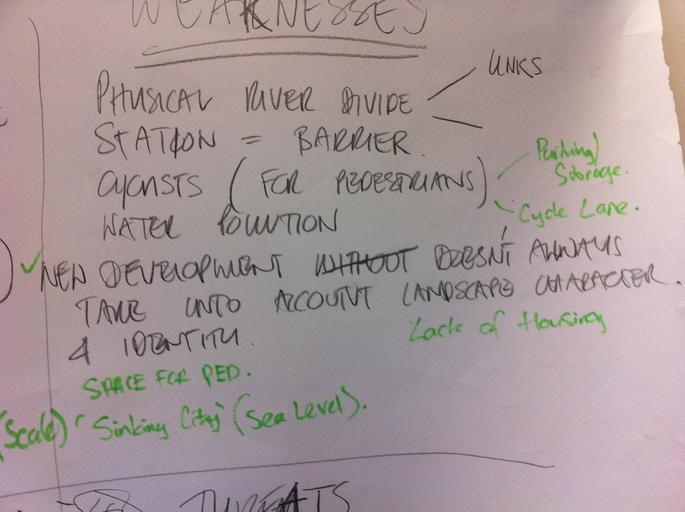 WEAKNESSES
PHYSICAL RIVER DIVIDE
LINKS
STATION = BARRIER.
CYCLISTS (FOR PEDESTRIANS)
Parking/
Storage.
Cycle Lane.
WATER POLLUTION
✓ NEW DEVELOPMENT WITHOUT DOESN'T ALWAYS
TAKE INTO ACCOUNT LANDSCAPE CHARACTER.
& IDENTITY.
Lack of Housing
SPACE FOR PED.
(Scale) "Sinking City" (Sea Level).
THREATS